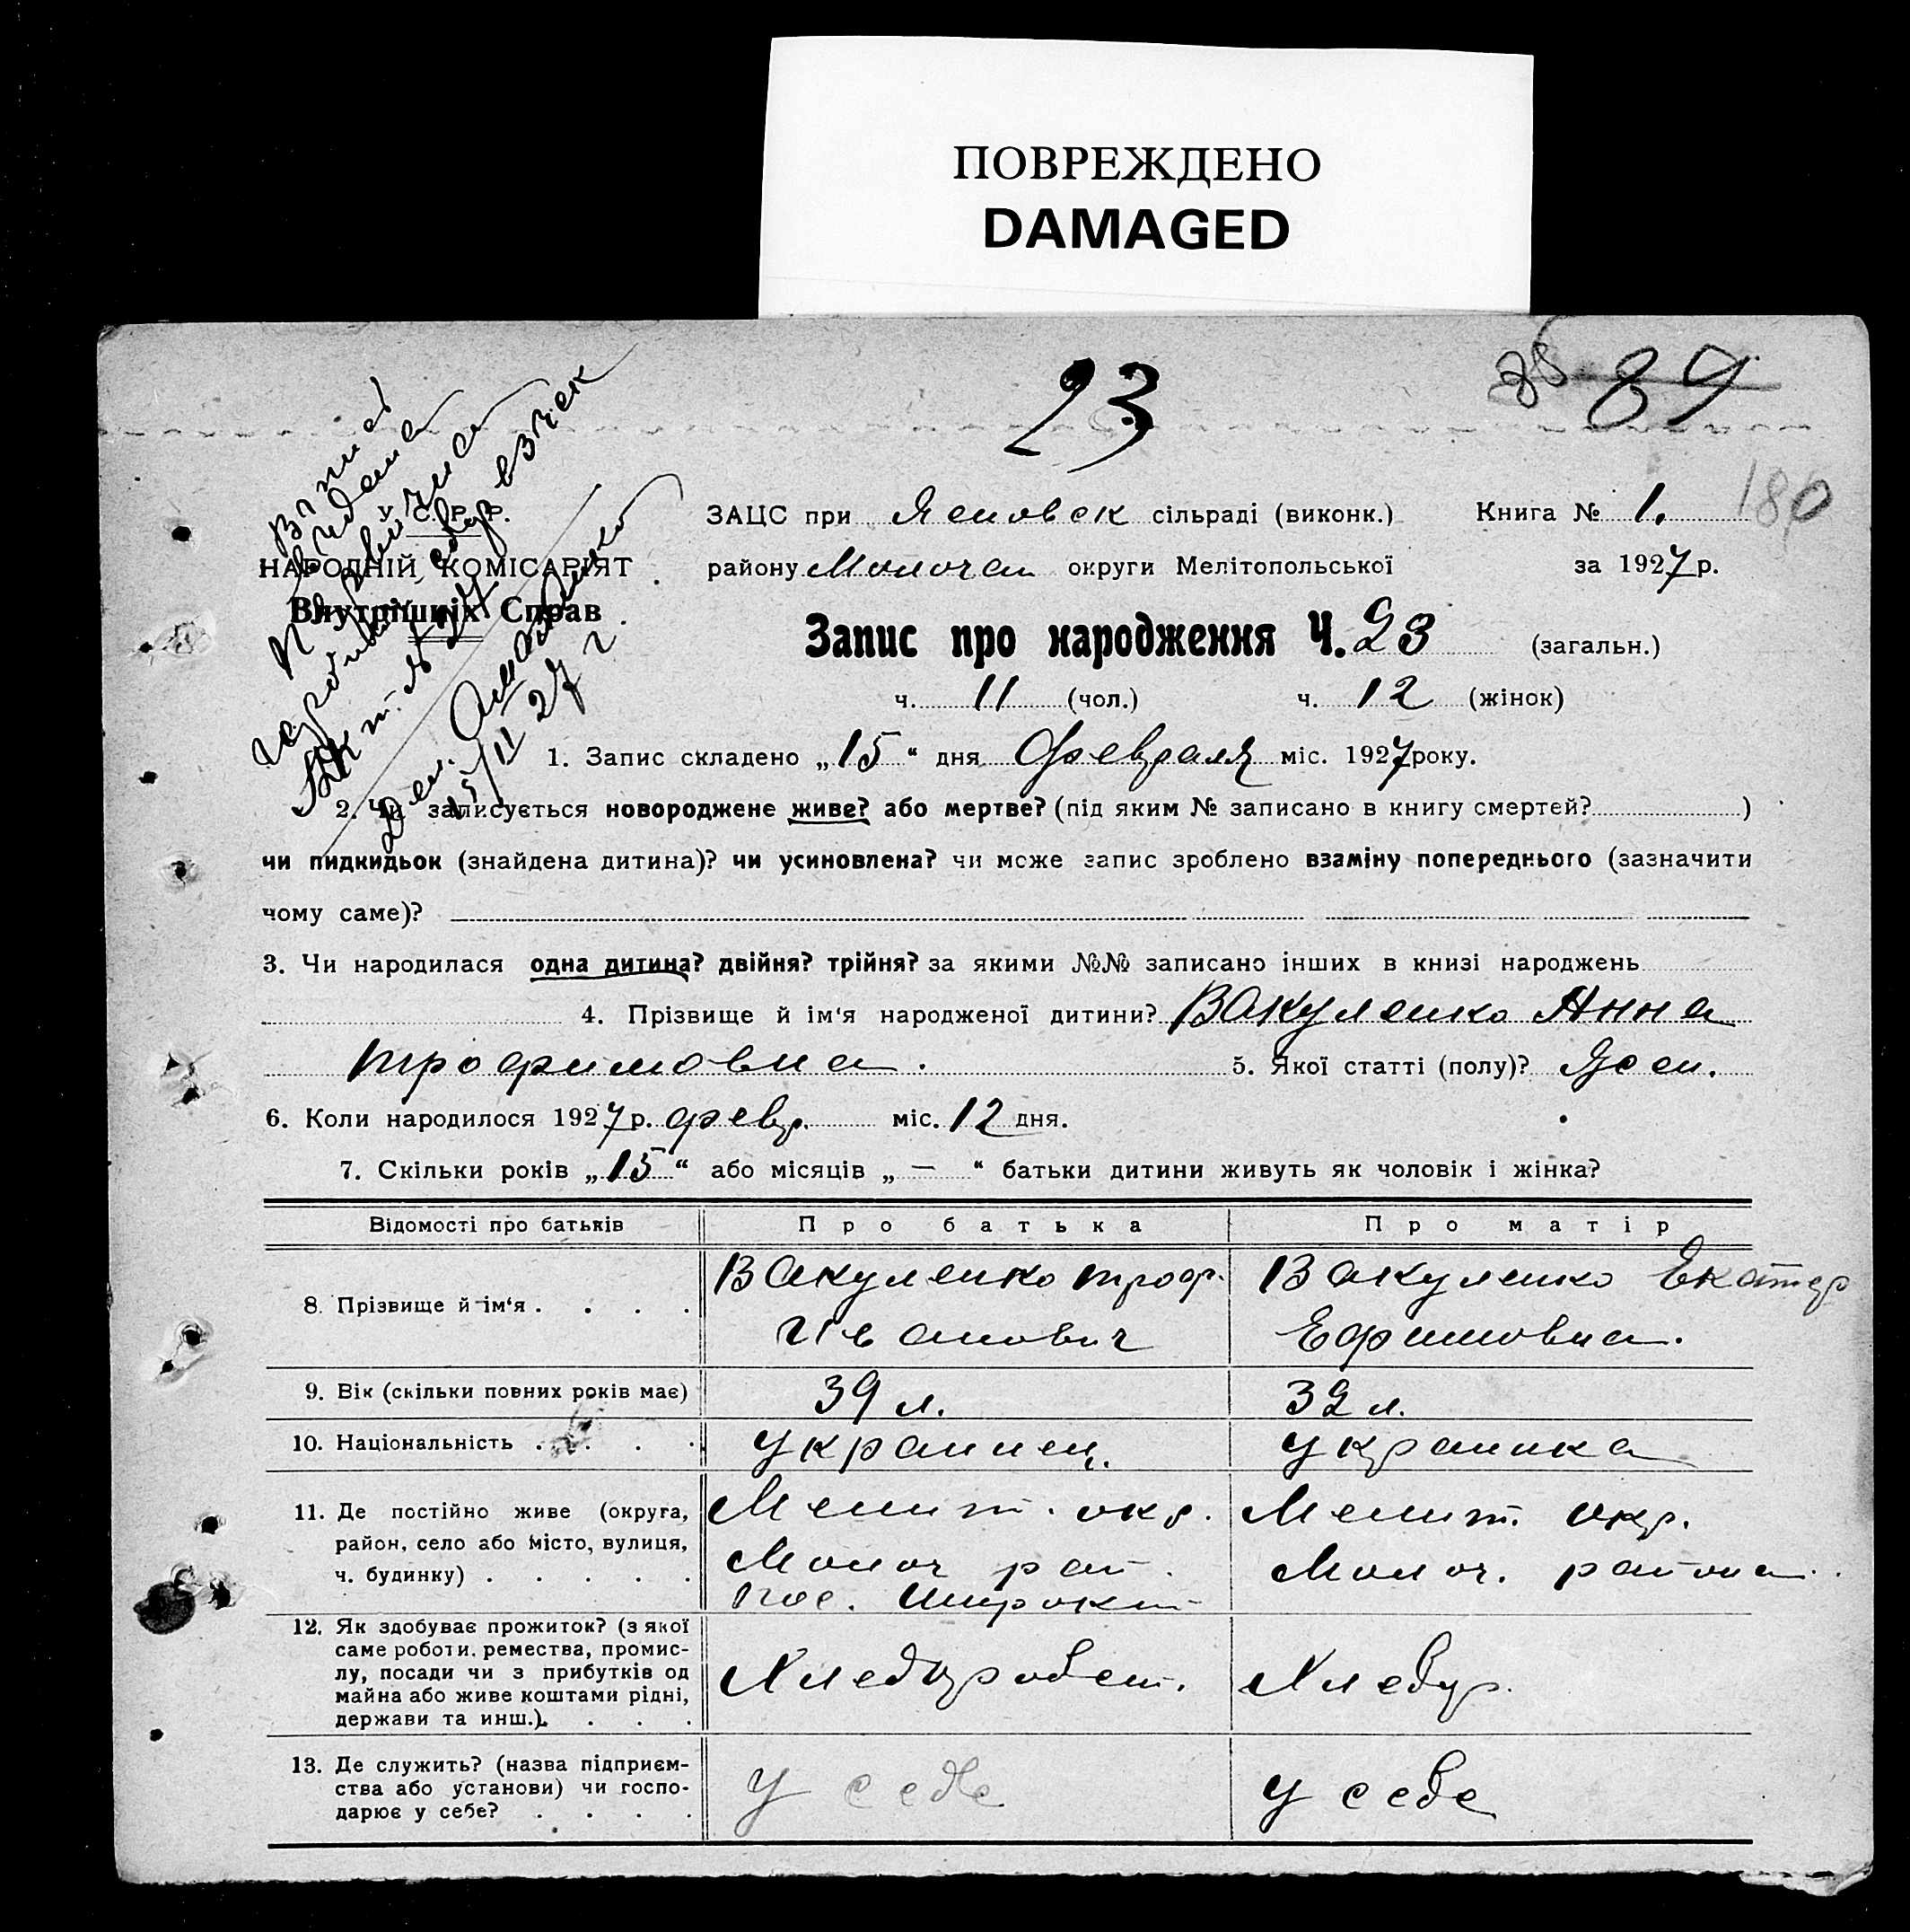 ПОВРЕЖДЕНО
DAMAGED
23
89
180
У. С. Р. Р.
НАРОДНІЙ КОМІСАРІЯТ
Внутрішніх Справ
ЗАЦС при сільраді (виконк.) Книга № 1.
району Молочан округи Мелітопольської за 1927 р.
Запис про народження Ч. 23 (загальн.)
ч. 11 (чол.) ч. 12 (жінок)
1. Запис складено „15“ дня Февраля міс. 1927 року.
2. Чи записується новороджене живе? або мертве? (під яким № записано в книгу смертей? )
чи пидкидьок (знайдена дитина)? чи усиновлена? чи може запис зроблено взаміну попереднього (зазначити
чому саме)?
3. Чи народилася одна дитина? двійня? трійня? за якими №№ записано інших в книзі народжень
4. Прізвище й ім‘я народженої дитини? Вакуленко Анна
Трофимовна. 5. Якої статті (полу)? Жен.
6. Коли народилося 1927 р. февр. міс. 12 дня.
7. Скільки років „15“ або місяців „—“ батьки дитини живуть як чоловік і жінка?
Відомості про батьків Про батька Про матір
8. Прізвище й ім‘я . . . . Вакуленко Троф. Вакуленко Екатер
Иванович Ефимовна.
9. Вік (скільки повних років має) 39 л. 32 л.
10. Національність . . . . Украинец. Украинка
11. Де постійно живе (округа, Мелит. окр. Мелит. окр.
район, село або місто, вулиця, Молоч рай. Молоч. района.
ч. будинку) . . . . . пос. Широкий
12. Як здобуває прожиток? (з якої
саме роботи, ремества, промис-
лу, посади чи з прибутків од Хлебороб. Хлебор.
майна або живе коштами рідні,
держави та инш.). . . .
13. Де служить? (назва підприєм-
ства або установи) чи госпо- у себе у себе
дарює у себе? . . . .